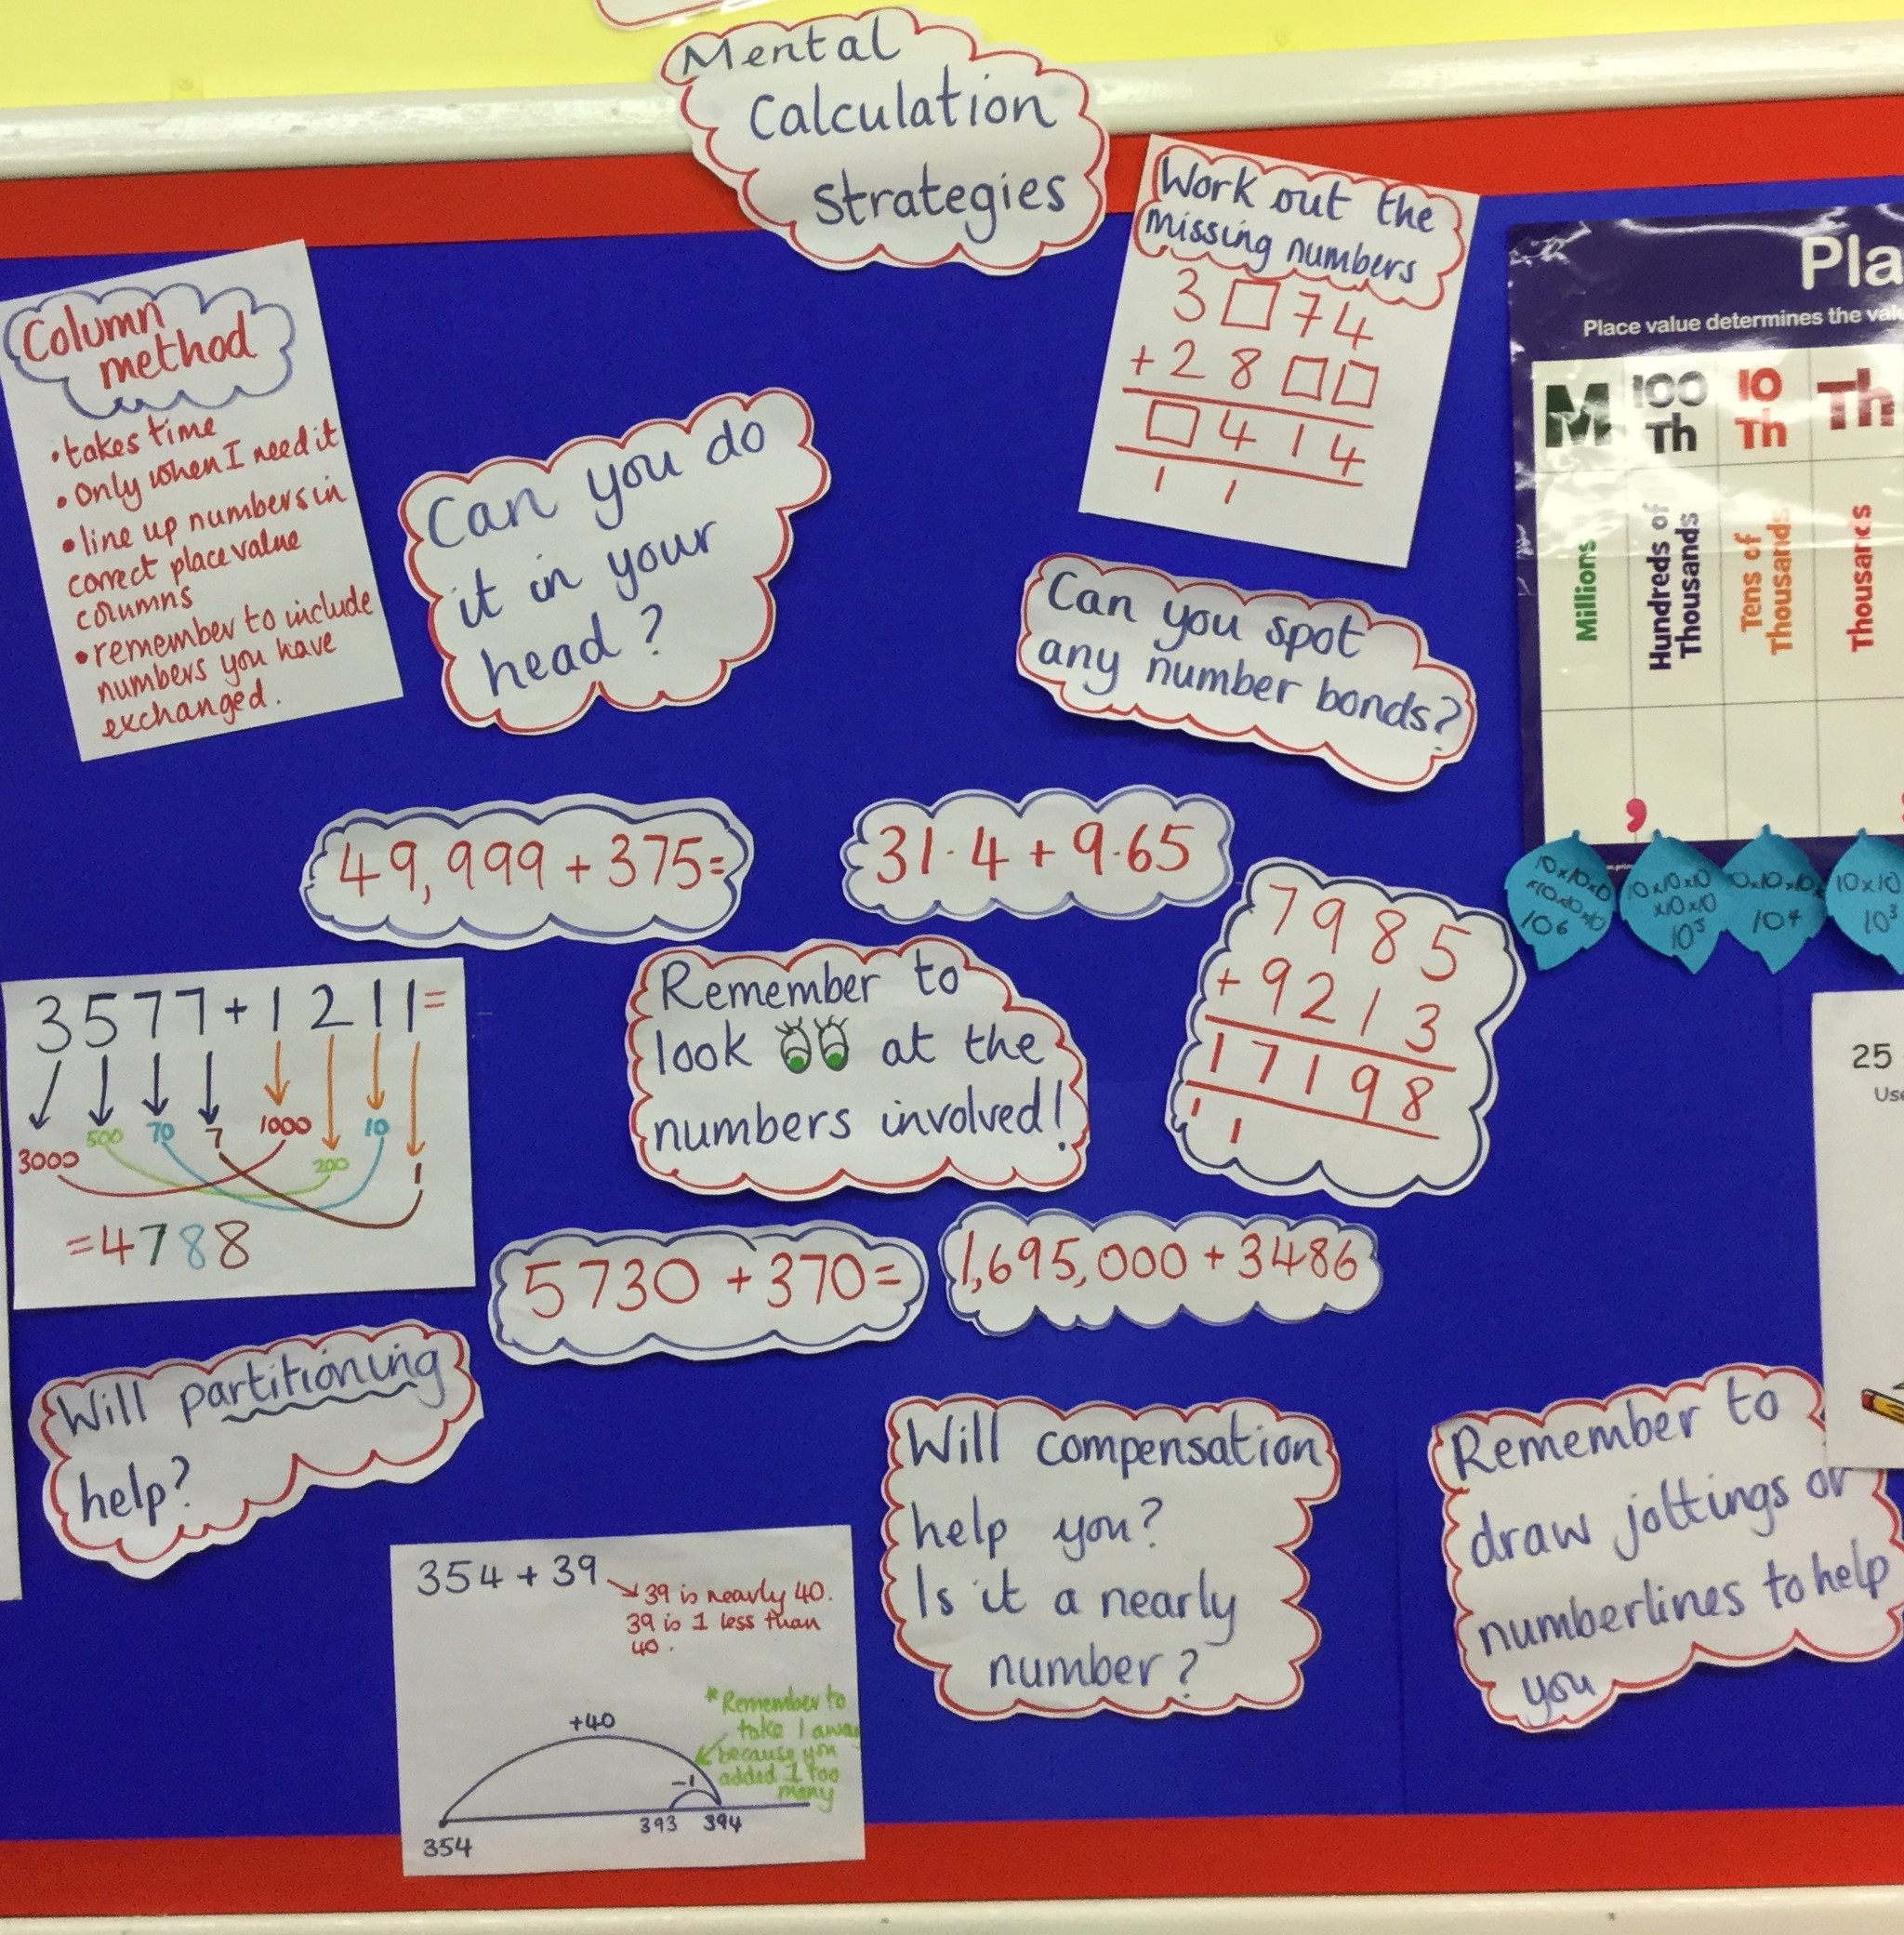 Mental
Calculation
Strategies
Column
method
• takes time
• Only when I need it
• line up numbers in
correct place value
columns
• remember to include
numbers you have
exchanged.
Can you do
it in your
head?
Work out the
missing numbers
3 □ 7 4
+ 2 8 □ □
□ 4 1 4
1 1
Can you spot
any number bonds?
Pla
Place value determines the val
M
100
Th
10
Th
Th
Millions
Hundreds of
Thousands
Tens of
Thousands
Thousands
,
10x10x10
x10x10x10
10⁶
10x10x10
x10x10
10⁵
10x10x10
10⁴
10x10
10³
49,999 + 375=
31·4 + 9·65
7985
+ 9213
17198
1 1
3577 + 1211=
3000 500 70 7 1000 200 10 1
=4788
Remember to
look at the
numbers involved!
5730 + 370=
1,695,000 + 3486
25
Use
Will partitioning
help?
Will compensation
help you?
Is it a nearly
number?
Remember to
draw jottings or
numberlines to help
you
354 + 39
39 is nearly 40.
39 is 1 less than
40.
*Remember to
take 1 away
because you
added 1 too
many
+40
-1
354
393 394